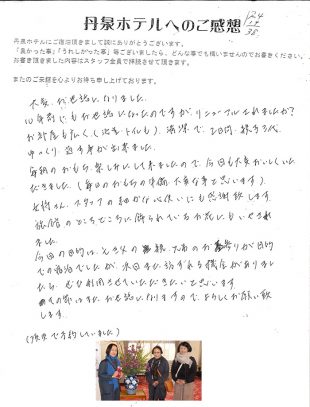 丹泉ホテルへのご感想
丹泉ホテルにご宿泊頂きまして誠にありがとうございます。
「良かった事」「うれしかった事」等ございましたら、どんな事でも構いませんのでお書きください。
お書き頂きました内容はスタッフ全員で拝読させて頂きます。
またのご来館を心よりお待ち申し上げております。
大変、お世話になりました。
10年前にもお世話になったのですが、リニューアルされましたか?
お部屋も広く(洗面、トイレも)、清潔で、2日間、親子3代、
ゆっくり、過す事が出来ました。
毎朝のおもち、楽しみにして来ましたので、今回も大変おいしくいた
だきました(毎日のおもちの準備、大変な事と思います)
女将さん、スタッフの細かな心使いにも感謝致します。
旅館のところどころに飾られているお花にもいやされ
ました。
今回の目的は
での宿泊でしたが、次回また訪ずれる機会がありまし
たら、ぜひ利用させていただきたいと思います。
その節はまた、お世話になりますので、よろしくお願い致
します。